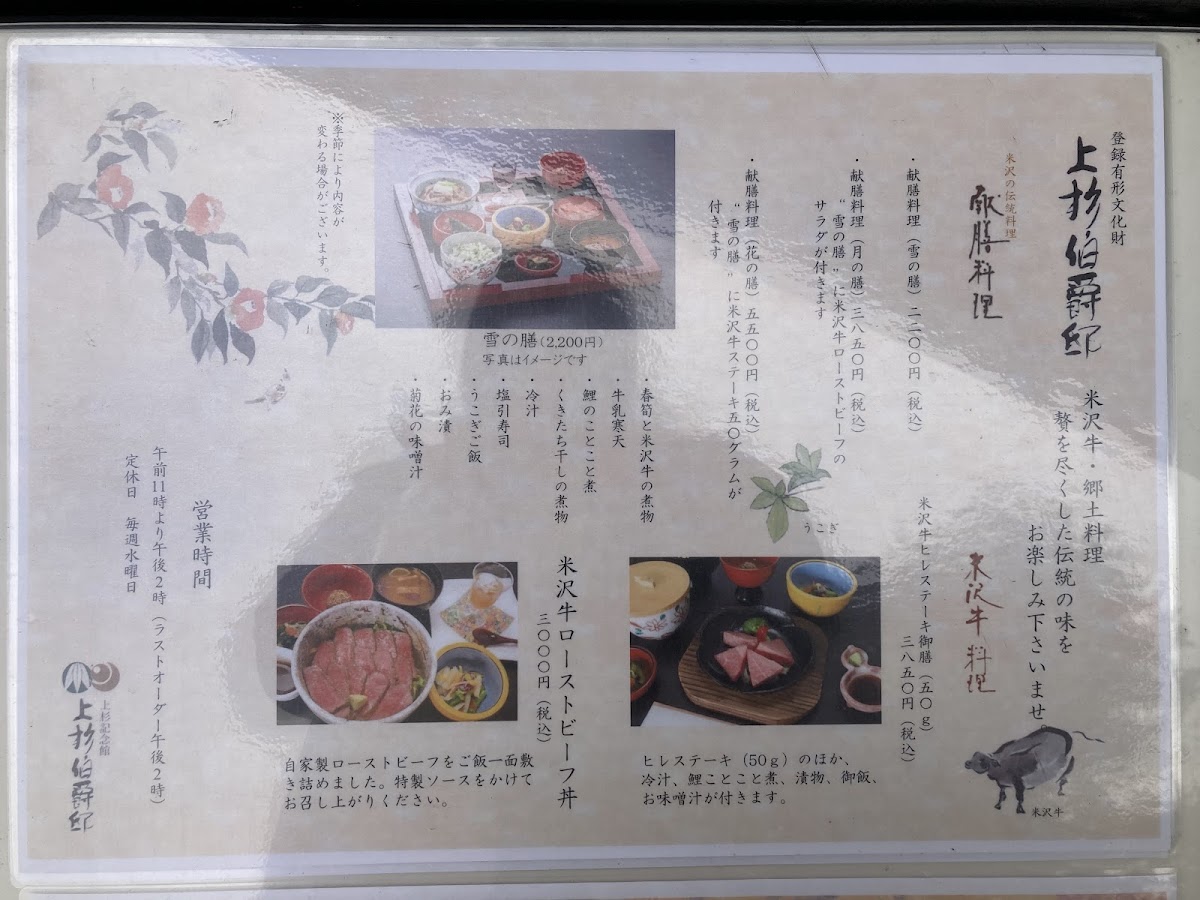 登録有形文化財
上杉伯爵邸
米沢牛・郷土料理
贅を尽くした伝統の味を
お楽しみ下さいませ。
米沢の伝統料理
献膳料理
・献膳料理（雪の膳）二二〇〇円（税込）
・献膳料理（月の膳）三八五〇円（税込）
“雪の膳”に米沢牛ローストビーフの
サラダが付きます
・献膳料理（花の膳）五五〇〇円（税込）
“雪の膳”に米沢牛ステーキ五〇グラムが
付きます
うこぎ
雪の膳（2,200円）
写真はイメージです
※季節により内容が
変わる場合がございます。
・春筍と米沢牛の煮物
・牛乳寒天
・鯉のことこと煮
・くきたち干しの煮物
・冷汁
・塩引寿司
・うこぎご飯
・おみ漬
・菊花の味噌汁
米沢牛料理
米沢牛ヒレステーキ御膳（五〇g）
三八五〇円（税込）
ヒレステーキ（50g）のほか、
冷汁、鯉ことこと煮、漬物、御飯、
お味噌汁が付きます。
米沢牛
米沢牛ローストビーフ丼
三〇〇〇円（税込）
自家製ローストビーフをご飯一面敷
き詰めました。特製ソースをかけて
お召し上がりください。
営業時間
午前11時より午後2時（ラストオーダー午後2時）
定休日　毎週水曜日
上杉記念館
上杉伯爵邸